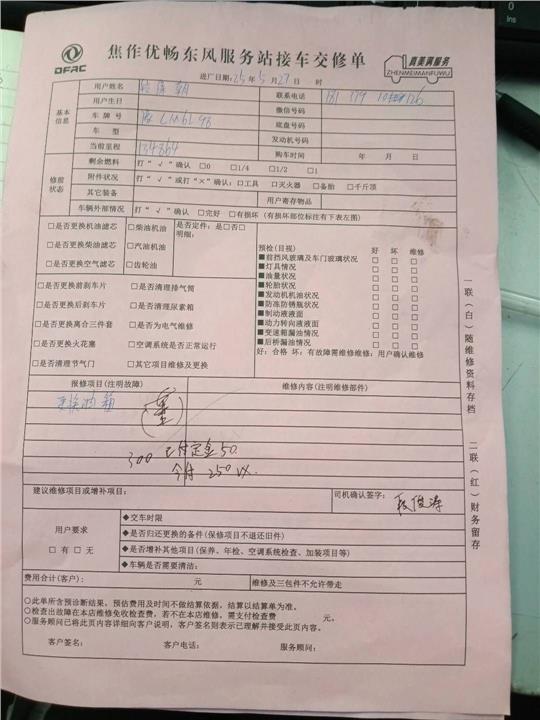 Ins
焦作优畅东风服务站接车交修单
DFAC
真美满服务
ZHENMEIMANFUWU
进厂日期:25年5月27日 时
用户姓名
联系电话
基本信息
用户生日
微信号码
车牌号
底盘号码
车型
发动机号码
当前里程 134864
购车时间 年 月 日
修前状态
剩余燃料 打“√”确认 □0 □1/4 □1/2 □1
附件状况 打“√”或打“×”确认:□工具 □灭火器 □备胎 □千斤顶
其它装备
用户寄存物品
车辆外部情况 打“√”确认 □完好 □有损坏(有损坏部位标注有下表左图)
□是否更换机油滤芯 □柴油机油 是否定件:是□否□
明细:
□是否更换柴油滤芯 □汽油机油
□是否更换空气滤芯 □齿轮油
预检(目视) 好 坏 维修
■前挡风玻璃及车门玻璃状况 □ □ □
■灯具情况 □ □ □
■油量状况 □ □ □
■轮胎状况 □ □ □
■发动机机油状况 □ □ □
■防冻防锈瓶状况 □ □ □
■制动液液面 □ □ □
■动力转向液液面 □ □ □
■变速箱漏油情况 □ □ □
■后桥漏油情况 □ □ □
好:合格 坏:有故障需维修维修:用户确认维修
□是否更换前刹车片 □是否清理排气筒
□是否更换后刹车片 □是否清理尿素箱
□是否更换离合三件套 □是否为电气维修
□是否更换火花塞 □空调系统是否正常运行
□是否清理节气门 □其它项目维修及更换
报修项目(注明故障)
维修内容(注明维修部件)
300 已付定金50.
今付 250 VX.
建议维修项目或增补项目:
司机确认签字:
用户要求
□有 □无
◆交车时限
◆是否归还更换的备件(保修项目不退还旧件)
◆是否增补其他项目(保养、年检、空调系统检查、加装项目等)
◆车辆是否需要清洁:
费用合计(客户): 元
维修及三包件不允许带走
○此单所含预诊断结果,预估费用及时间不做结算依据,结算以结算单为准。
○检查出故障在本店维修免收检查费,若不在本店维修,需支付检查费 元。
○服务顾问已将此页内容详细向客户说明,客户签名则表示已理解并接受此页内容。
客户签名: 客户电话: 服务顾问:
一联(白)随维修资料存档 二联(红)财务留存